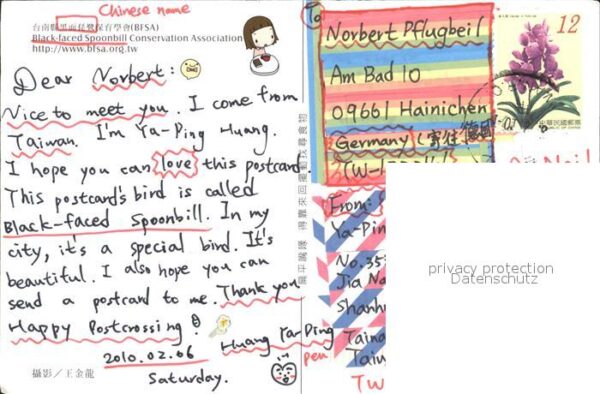 Chinese name
台南縣黑面琵鷺保育學會(BFSA)
Black-faced Spoonbill Conservation Association
http://www.bfsa.org.tw
Dear Norbert:
Nice to meet you. I come from
Taiwan. I'm Ya-Ping Huang.
I hope you can love this postcard.
This postcard's bird is called
Black-faced Spoonbill. In my
city, it's a special bird. It's
beautiful. I also hope you can
send a postcard to me. Thank you
Happy Postcrossing!
Huang Ya-Ping
2010.02.06
Saturday.
攝影／王金龍
扁平嘴喙 得靠來回擺動找尋食物
To
Norbert Pflugbeil
Am Bad 10
09661 Hainichen
Germany (寄往德國)
12
中華民國郵票
From:
Ya-Pin
No.35
Jia Na
Shanh
Taina
Taiw
TW
pen
privacy protection
Datenschutz